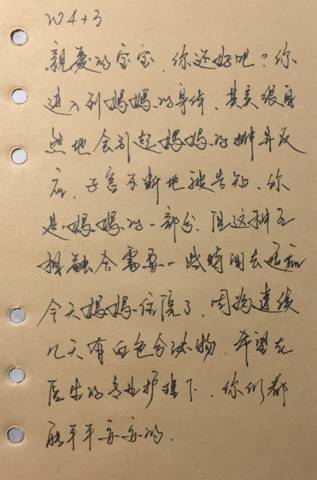 W4+3
親愛的宝宝，你还好吧？你
进入到妈妈的身体，其实很自
然地会引起妈妈的排异反
应，子宫不断地被告知，你
是妈妈的一部分，但这种互
相融合需要一些时间去适应
今天妈妈住院了，因为连续
几天有白色分泌物，希望在
医生的专业护理下，你们都
能平平安安的.